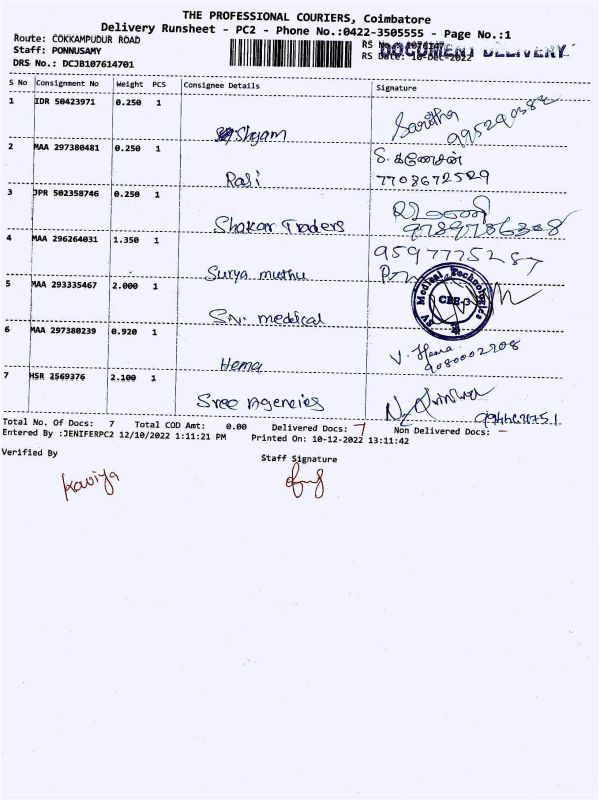 THE PROFESSIONAL COURIERS, Coimbatore
Delivery Runsheet - PC2 - Phone No.:0422-3505555 - Page No.:1
Route: COKKAMPUDUR ROAD
RS No.: 1076147
DOCUMENT DELIVERY
Staff: PONNUSAMY
RS Date: 10-Dec-2022
DRS No.: DCJB107614701
S No Consignment No Weight PCS Consignee Details Signature
1 IDR 50423971 0.250 1 Shyam Saritha
2 MAA 297380481 0.250 1 Rali S. கணேசன்
7708672529
3 JPR 502358746 0.250 1 Shakar Traders
4 MAA 296264031 1.350 1 Surya muthu 9597775287
5 MAA 293335467 2.000 1 SN. medical SV Medical Technologies CBE-3
6 MAA 297380239 0.920 1 Hema V. Hema
9080002208
7 HSR 2569376 2.100 1 Sree Agencies
Total No. Of Docs: 7 Total COD Amt: 0.00 Delivered Docs: 7 Non Delivered Docs: -
Entered By :JENIFERPC2 12/10/2022 1:11:21 PM Printed On: 10-12-2022 13:11:42
Verified By Staff Signature
Kaviya